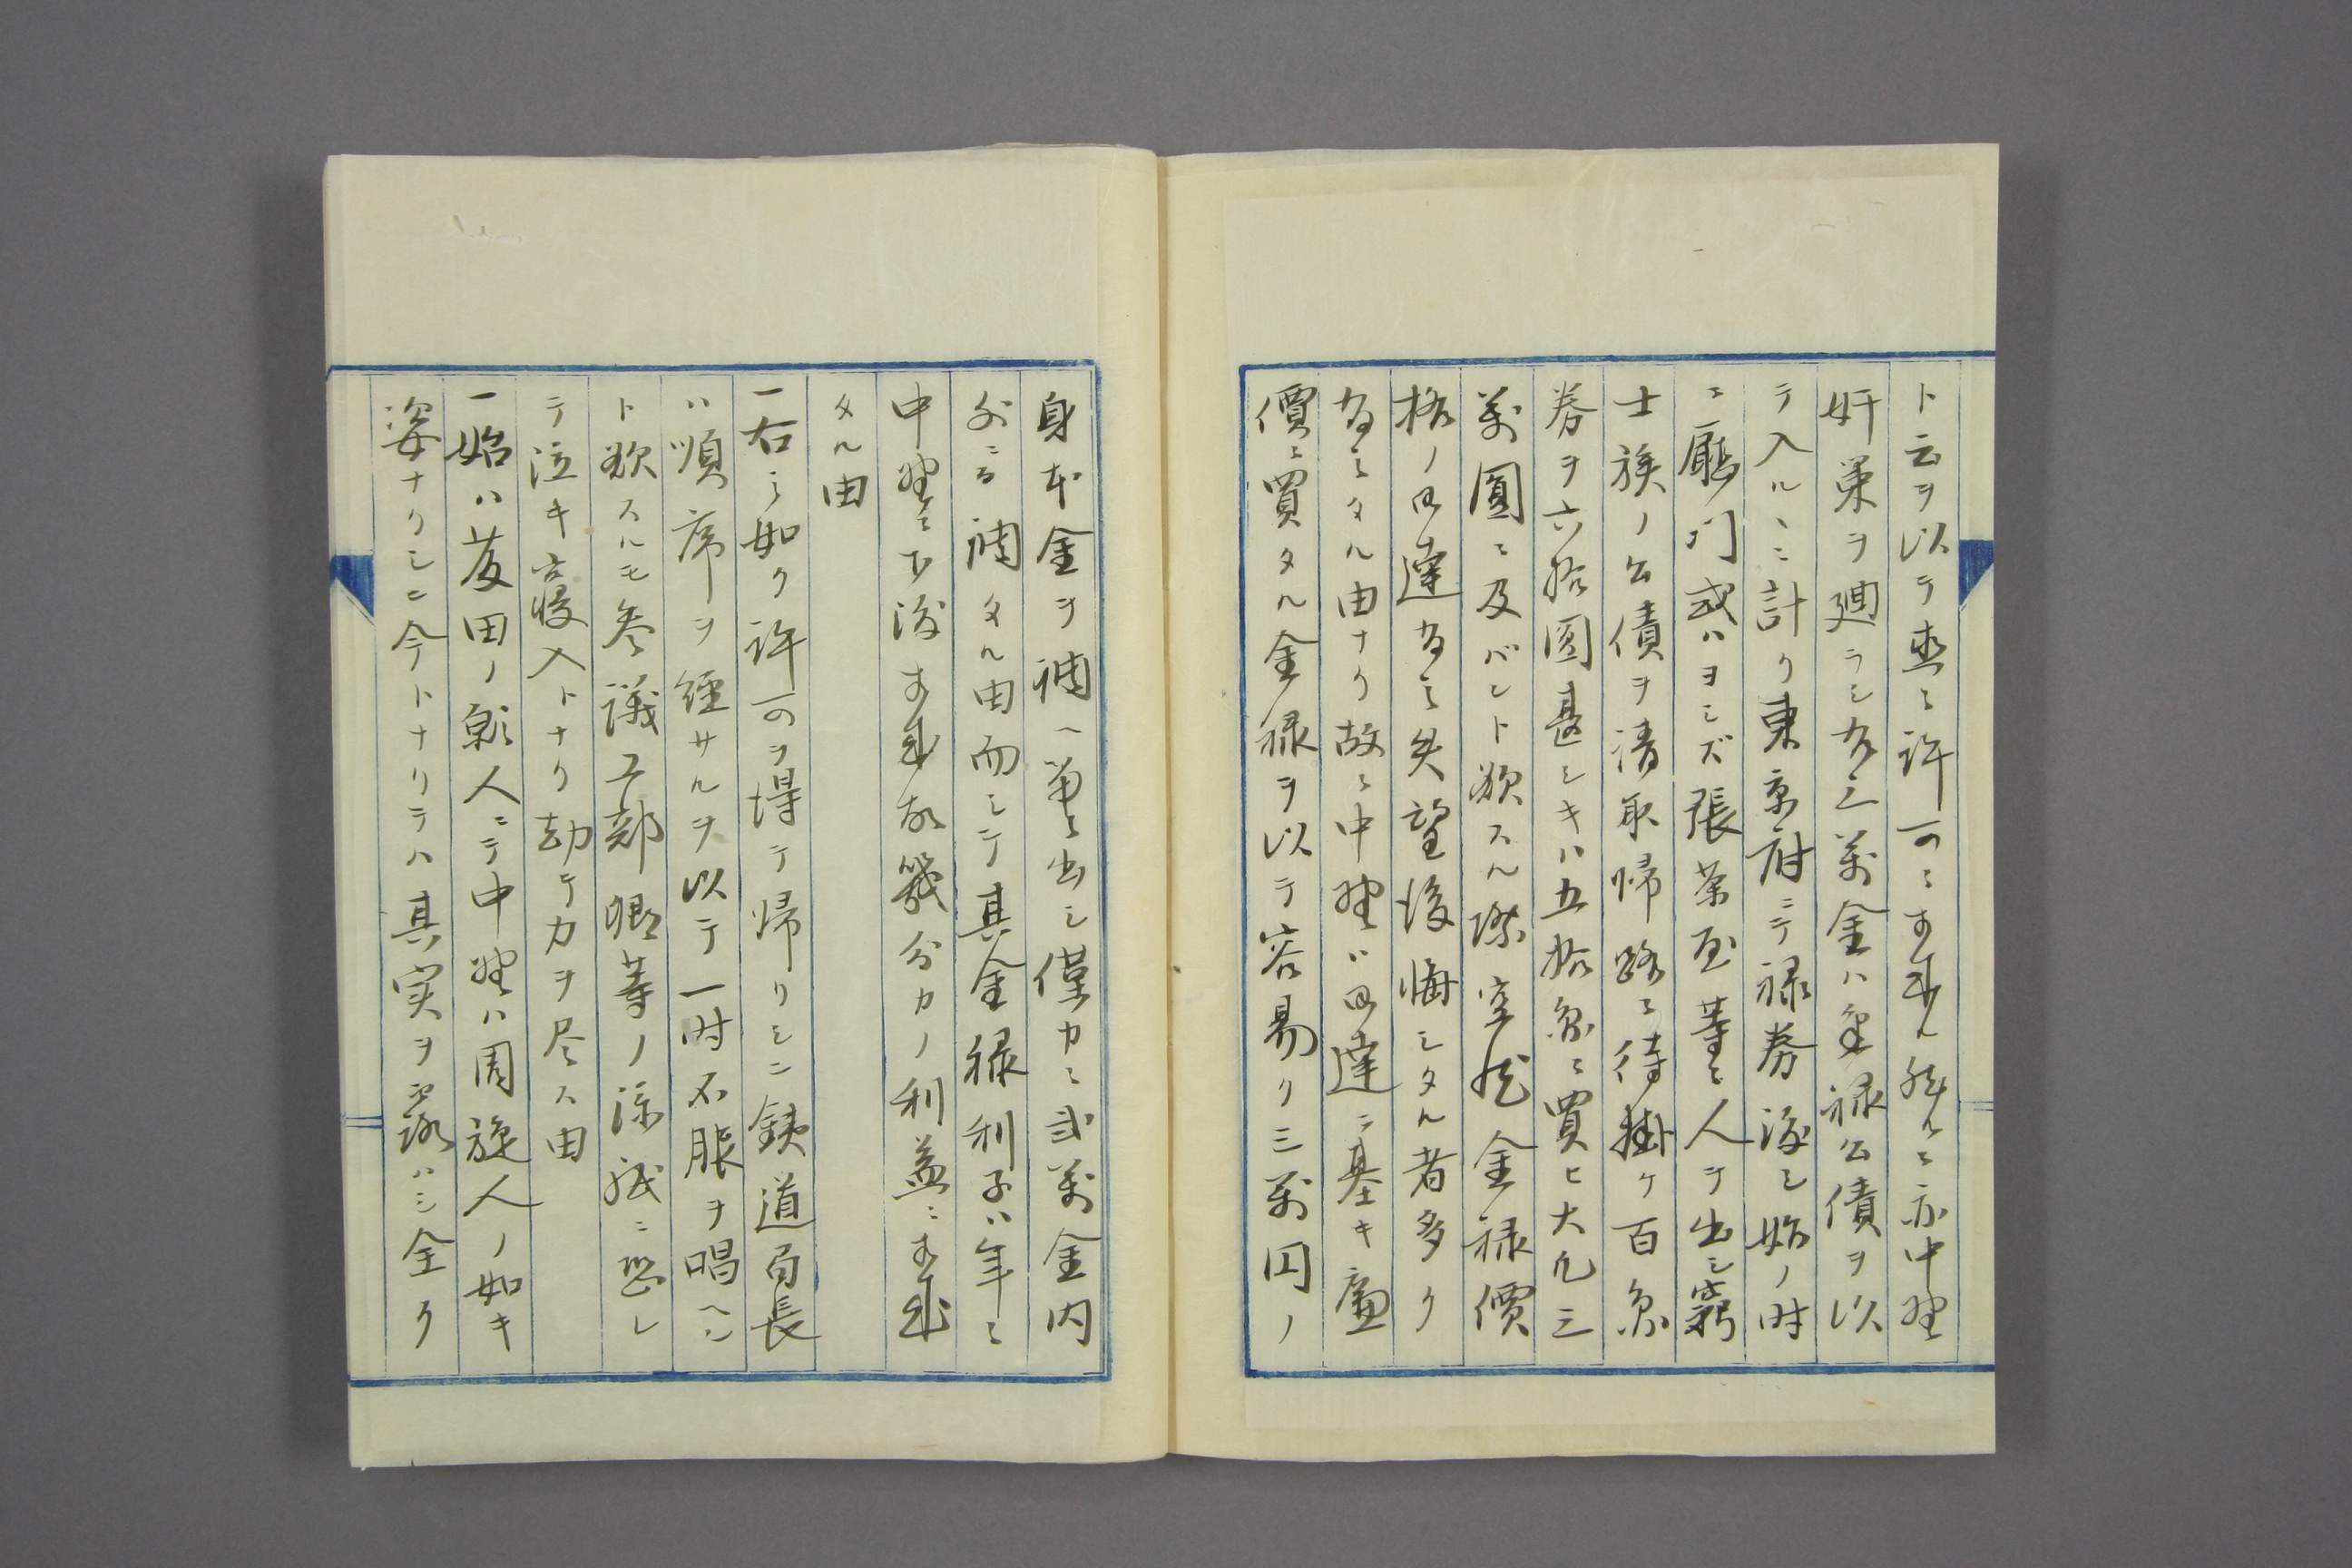 ト云ヲ以テ直ニ許可ニ相成ル然ルニ亦中野
奸策ヲ廻ラシ右三萬金ハ金禄公債ヲ以
テ入ルヽニ計リ東京府ニテ禄券渡シ始ノ時
ニ廳門或ハヨシズ張茶屋等ニ人ヲ出シ窮
士族ノ公債ヲ請取帰路ニ待掛ケ百円
券ヲ六拾圓甚シキハ五拾円ニ買ヒ大凡三
萬圓ニ及バント欲スル際突然金禄價
格ノ回達為シ失望後悔シタル者多ク
為シタル由ナリ故ニ中野ハ回達ニ基キ廉
價ニ買タル金禄ヲ以テ容易ク三萬円ノ
身本金ヲ補ヘ第ニ出シ僅カニ弐萬金内
外ニテ補タル由而シテ其金禄利子ハ年ニ
中野ニ下渡相成故幾分カノ利益ニ相成
タル由
一右之如ク許可ヲ得テ帰リシニ鉄道局長
ハ順席ヲ経サルヲ以テ一時不服ヲ唱ヘン
ト欲スルモ参議工部卿等ノ涼威ニ恐レ
テ泣キ寝入トナリ却テ力ヲ尽ス由
一始ハ茂田ノ願人ニテ中野ハ周旋人ノ如キ
姿ナリシニ今トナリテハ其実ヲ露ハシ全ク